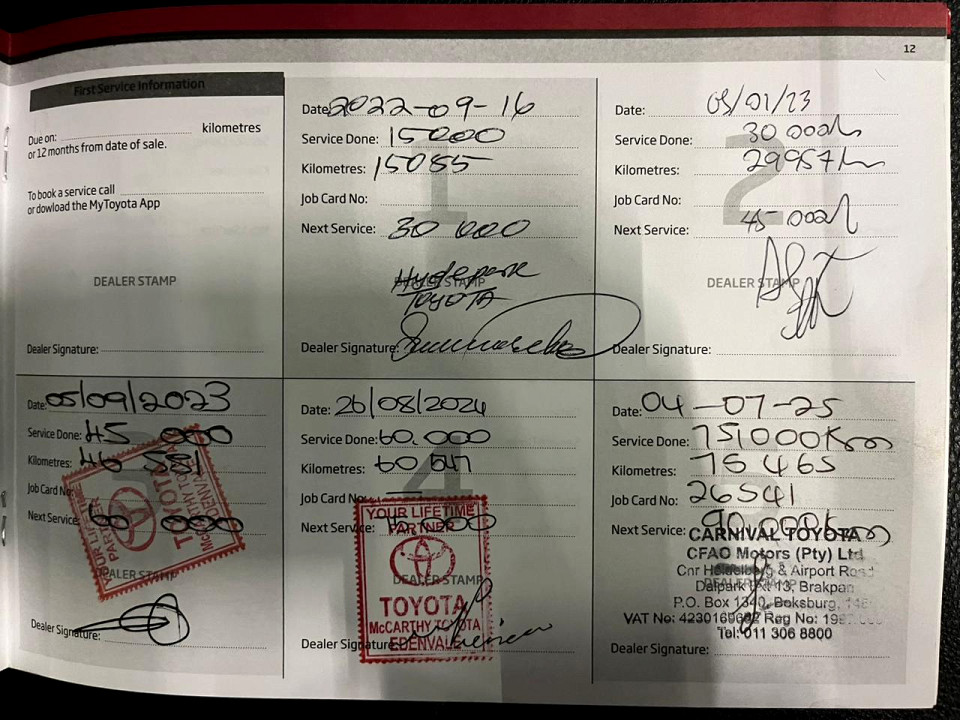 12
First Service Information
Due on: kilometres
or 12 months from date of sale.
To book a service call
or dowload the MyToyota App
DEALER STAMP
Dealer Signature:
1
Date: 2022-09-16
Service Done: 15000
Kilometres: 15085
Job Card No:
Next Service: 30 000
Hydepark
TOYOTA
DEALER STAMP
Dealer Signature:
2
Date: 05/01/23
Service Done: 30 000
Kilometres: 29957
Job Card No:
Next Service: 45 000
DEALER STAMP
Dealer Signature:
Date: 05/09/2023
Service Done: 45 000
Kilometres: 46 581
Job Card No:
Next Service: 60 000
YOUR LIFETIME
PARTNER
TOYOTA
McCARTHY TOYOTA
EDENVALE
DEALER STAMP
Dealer Signature:
4
Date: 26/08/2024
Service Done: 60.000
Kilometres: 60 547
Job Card No:
Next Service:
YOUR LIFETIME
PARTNER
DEALER STAMP
TOYOTA
McCARTHY TOYOTA
EDENVALE
Dealer Signature:
Date: 04-07-25
Service Done: 75,000km
Kilometres: 75 465
Job Card No: 26541
Next Service: 90.000km
CARNIVAL TOYOTA
CFAO Motors (Pty) Ltd
Cnr Heidelberg & Airport Road
Dalpark 13, Brakpan
DEALER STAMP
P.O. Box 1340, Boksburg,
VAT No: Reg No:
Tel: 011 306 8800
Dealer Signature: